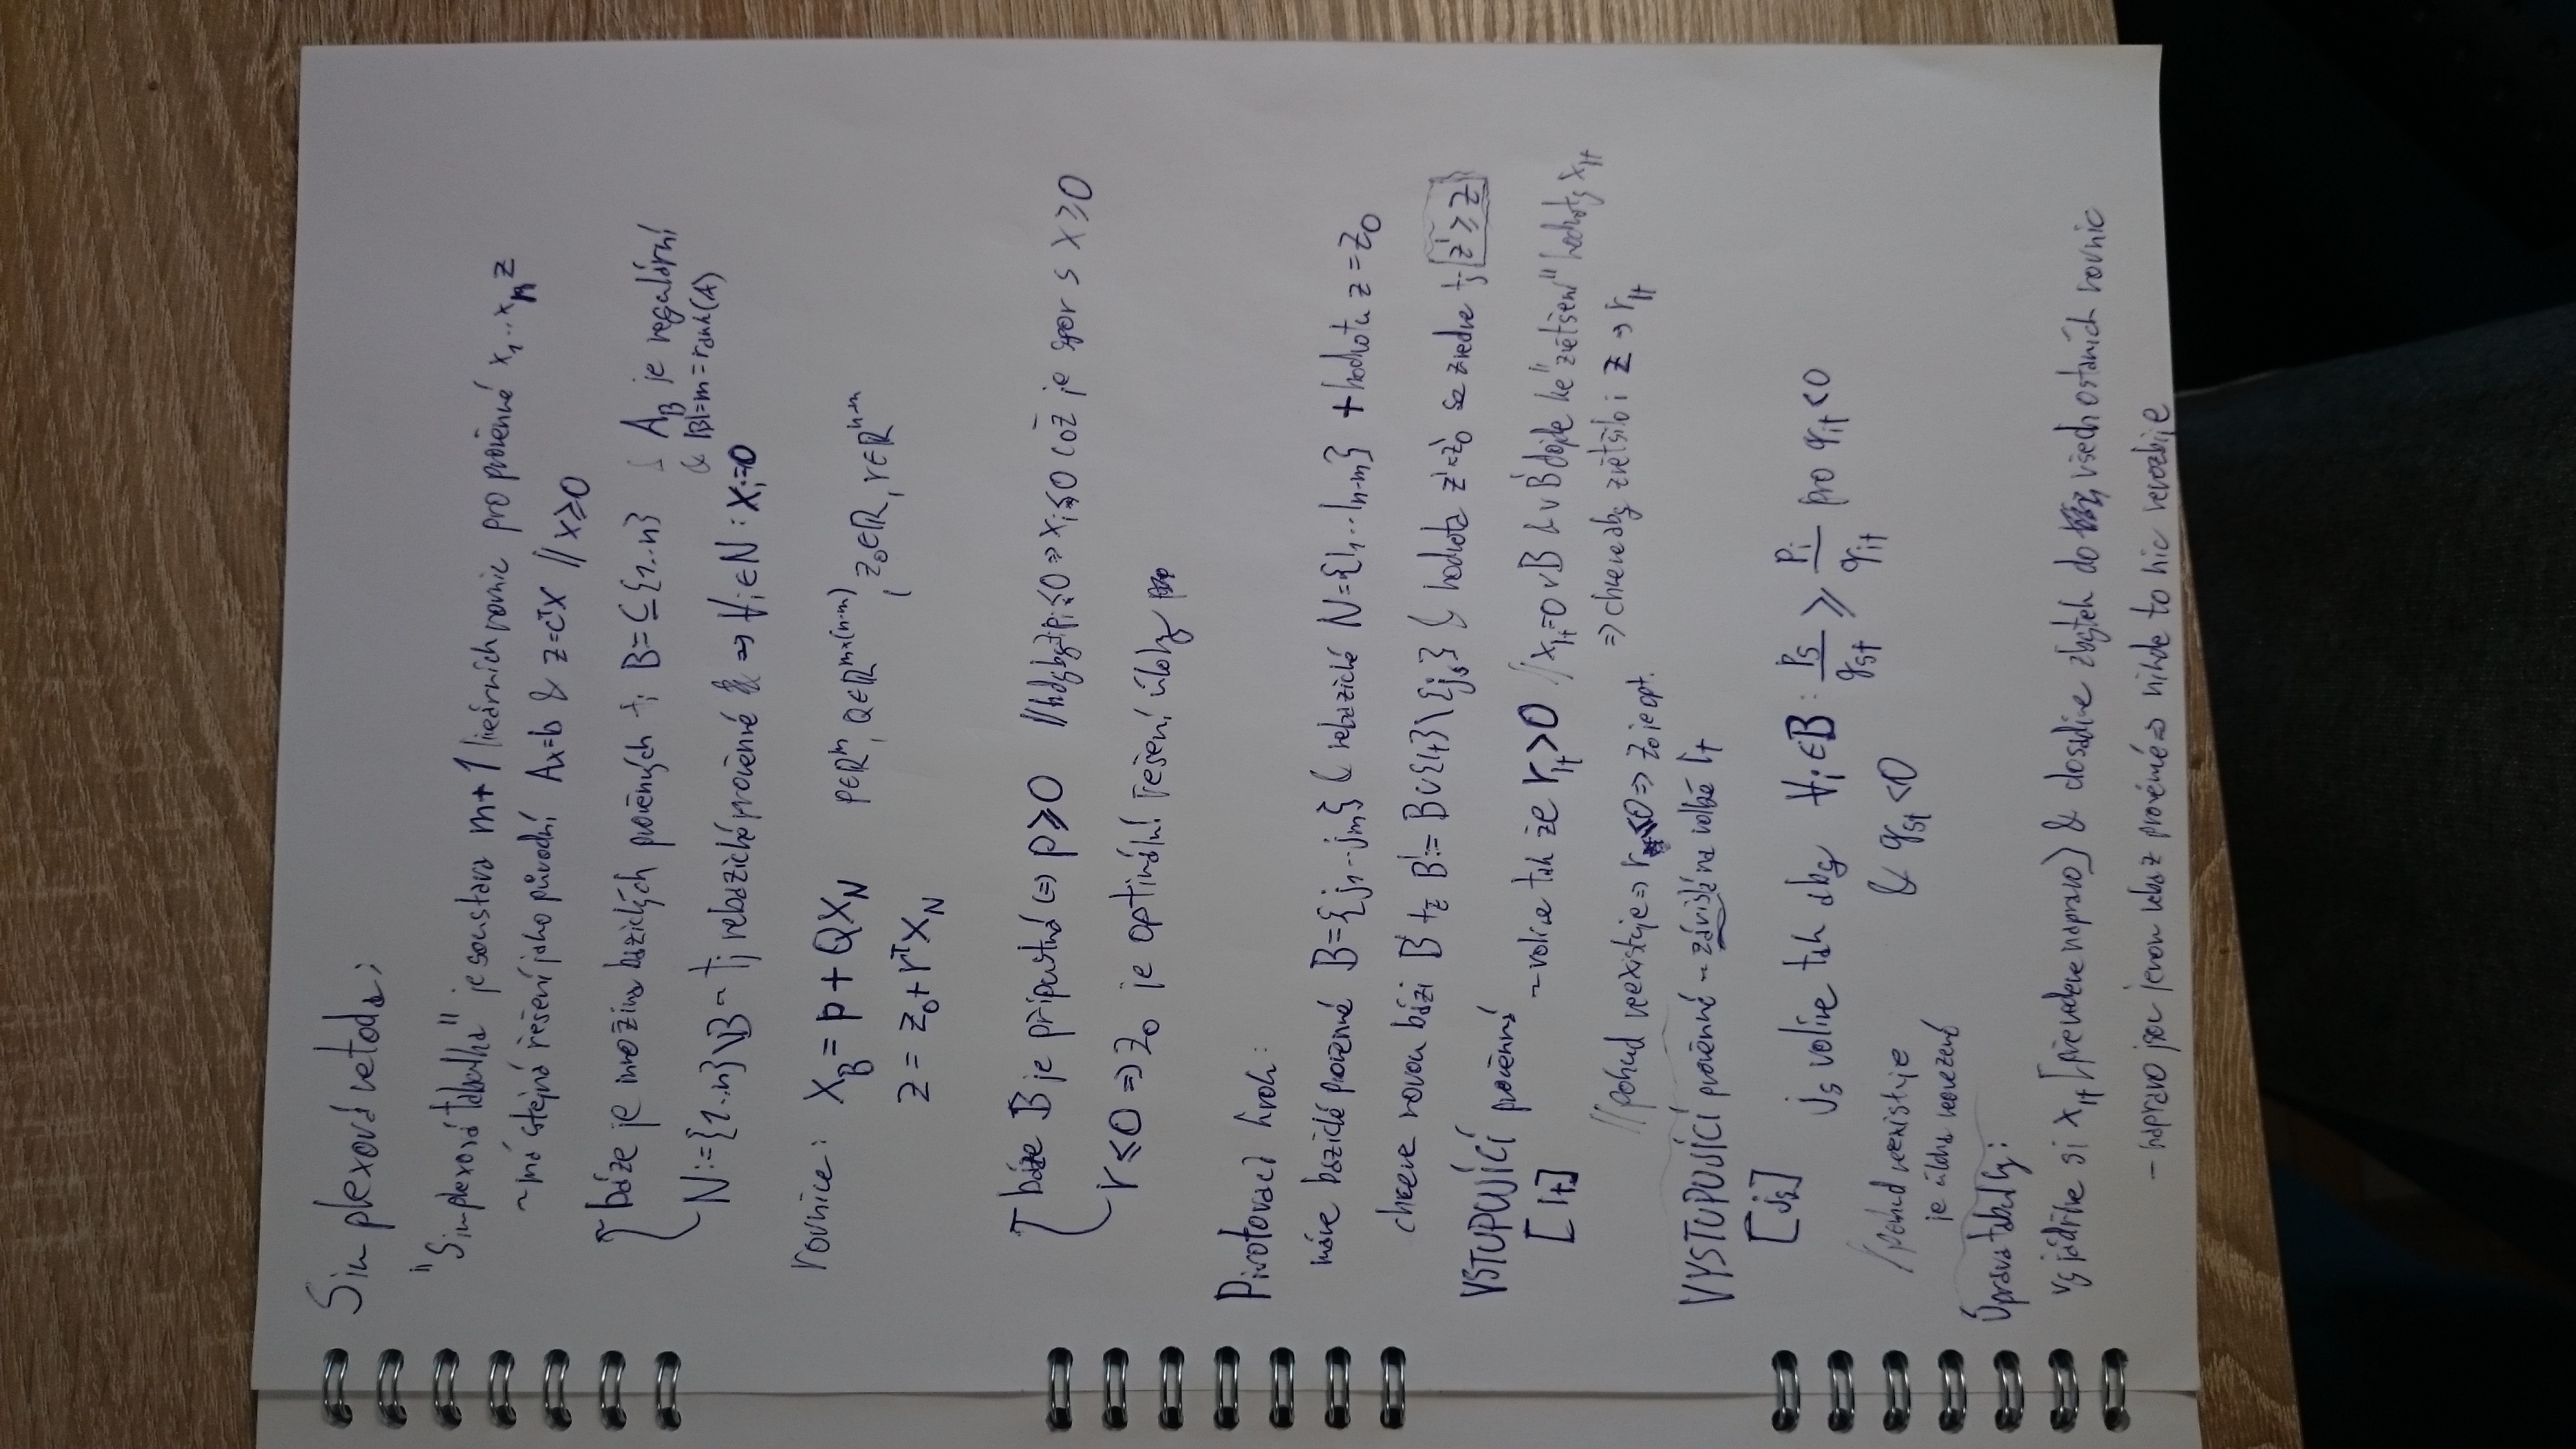 Simplexová metoda:
"Simplexová tabulka" je soustava m+1 lineárních rovnic pro proměnné x₁..xₙ z
~ má stejná řešení jako původní Ax=b & z=cᵀx // x≥0
báze je množina bazických proměnných tj B=⊆{1..n} A_B je regulární
& |B|=m=rank(A)
N:={1..n}\B ~ tj nebazické proměnné ⇒ ∀i∈N: xᵢ=0
rovnice: x_B = p + Qx_N p∈ℝᵐ, Q∈ℝ^{m×(n-m)}, z₀∈ℝ, r∈ℝ^{n-m}
z = z₀ + rᵀx_N
báze B je přípustná ⇔ p≥0 //kdyby pᵢ≤0 ⇒ xᵢ≤0 což je spor s x≥0
r≤0 ⇒ z₀ je optimální řešení úlohy
Pivotovací krok:
máme bazické proměnné B={j₁..jₘ} & nebazické N={l₁..lₙ₋ₘ} + hodnotu z=z₀
chceme novou bázi B' tž B':=B∪{lₜ}\{jₛ} & hodnota z'=z₀' se zvedne tj z'≥z
VSTUPUJÍCÍ proměnná ~volíme tak že r_{lt}>0 //x_{lt}=0 v B & v B' dojde ke "zvětšení" hodnoty x_{lt}
[lₜ] ⇒ chceme aby zvětšilo i z ⇒ r_{lt}
//pokud neexistuje ⇒ r≤0 ⇒ z₀ je opt.
VYSTUPUJÍCÍ proměnná ~ závislé na volbě lₜ
[jₛ] jₛ volíme tak aby ∀i∈B: pₛ/qₛₜ ≥ pᵢ/qᵢₜ pro qᵢₜ<0
& qₛₜ<0
//pokud neexistuje
je úloha neomezená
Úprava tabulky:
vyjádříme si x_{lt} [převedeme napravo] & dosadíme zbytek do všech ostatních rovnic
– napravo jsou jenom nebaz proměnné ⇒ nikde to nic nerozbije